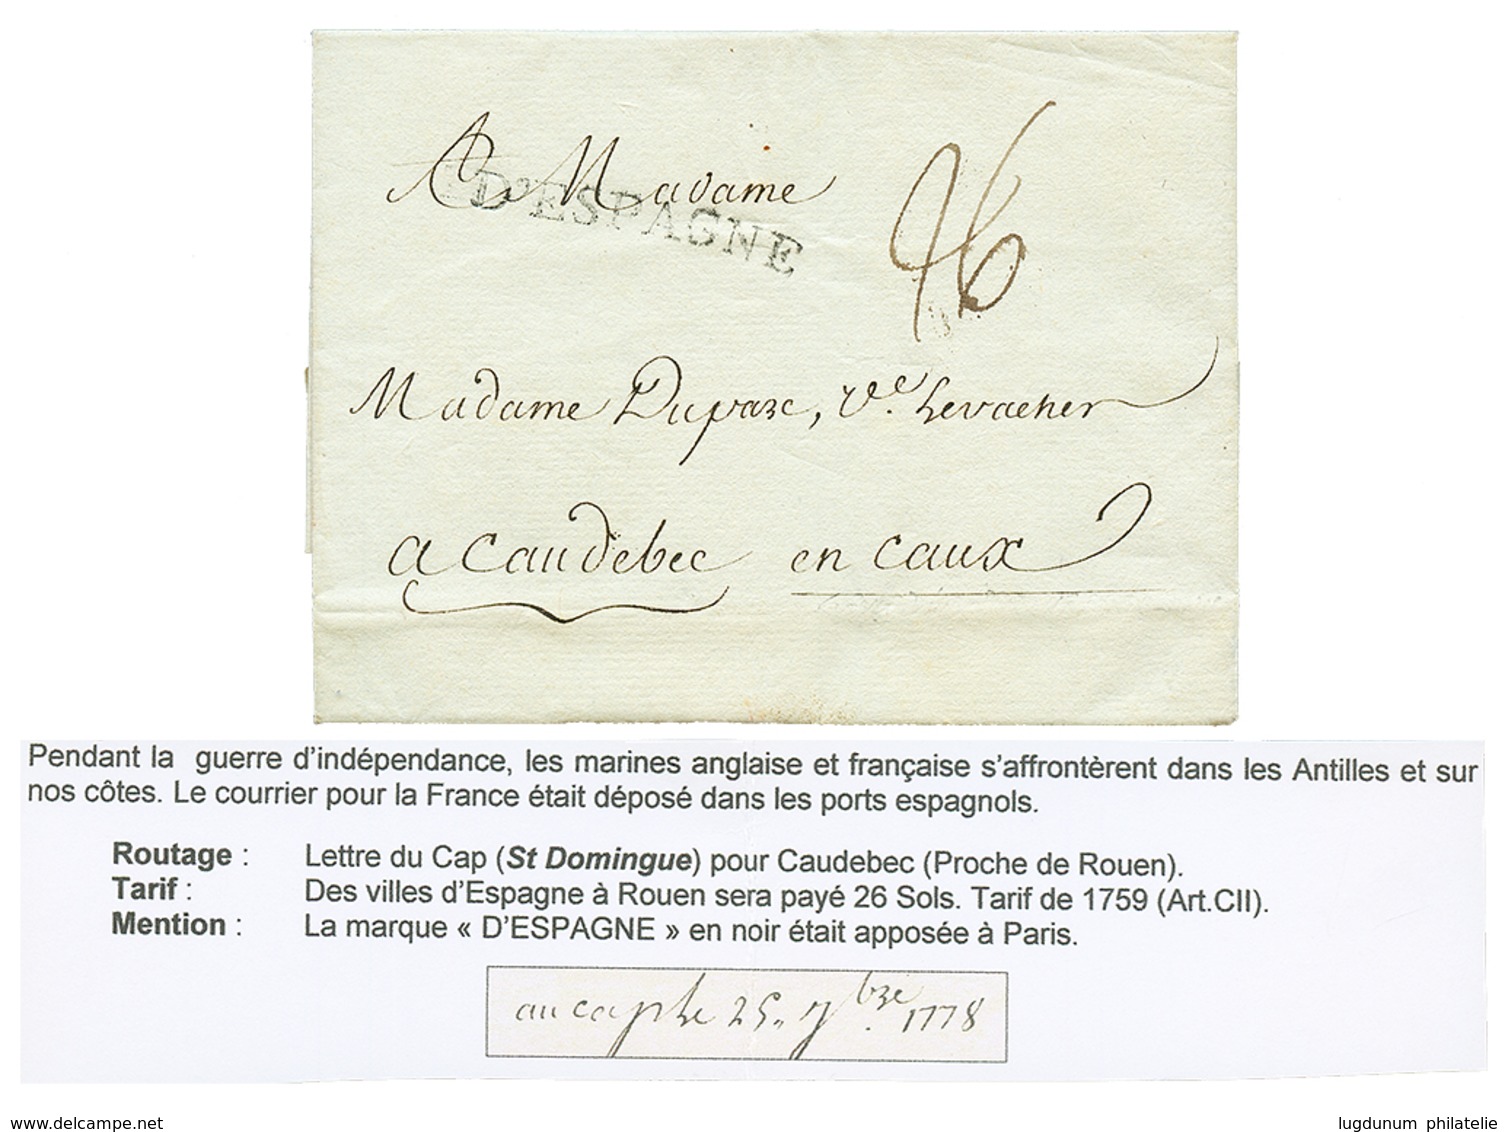 A Madame
D'ESPAGNE
26
Madame Duparc, Ve. Levacher
a Caudebec en Caux
Pendant la guerre d'indépendance, les marines anglaise et française s'affrontèrent dans les Antilles et sur
nos côtes. Le courrier pour la France était déposé dans les ports espagnols.
Routage : Lettre du Cap (St Domingue) pour Caudebec (Proche de Rouen).
Tarif : Des villes d'Espagne à Rouen sera payé 26 Sols. Tarif de 1759 (Art.CII).
Mention : La marque « D'ESPAGNE » en noir était apposée à Paris.
au cap le 25. 7bre. 1778
www.delcampe.net
lugdunum philatelie